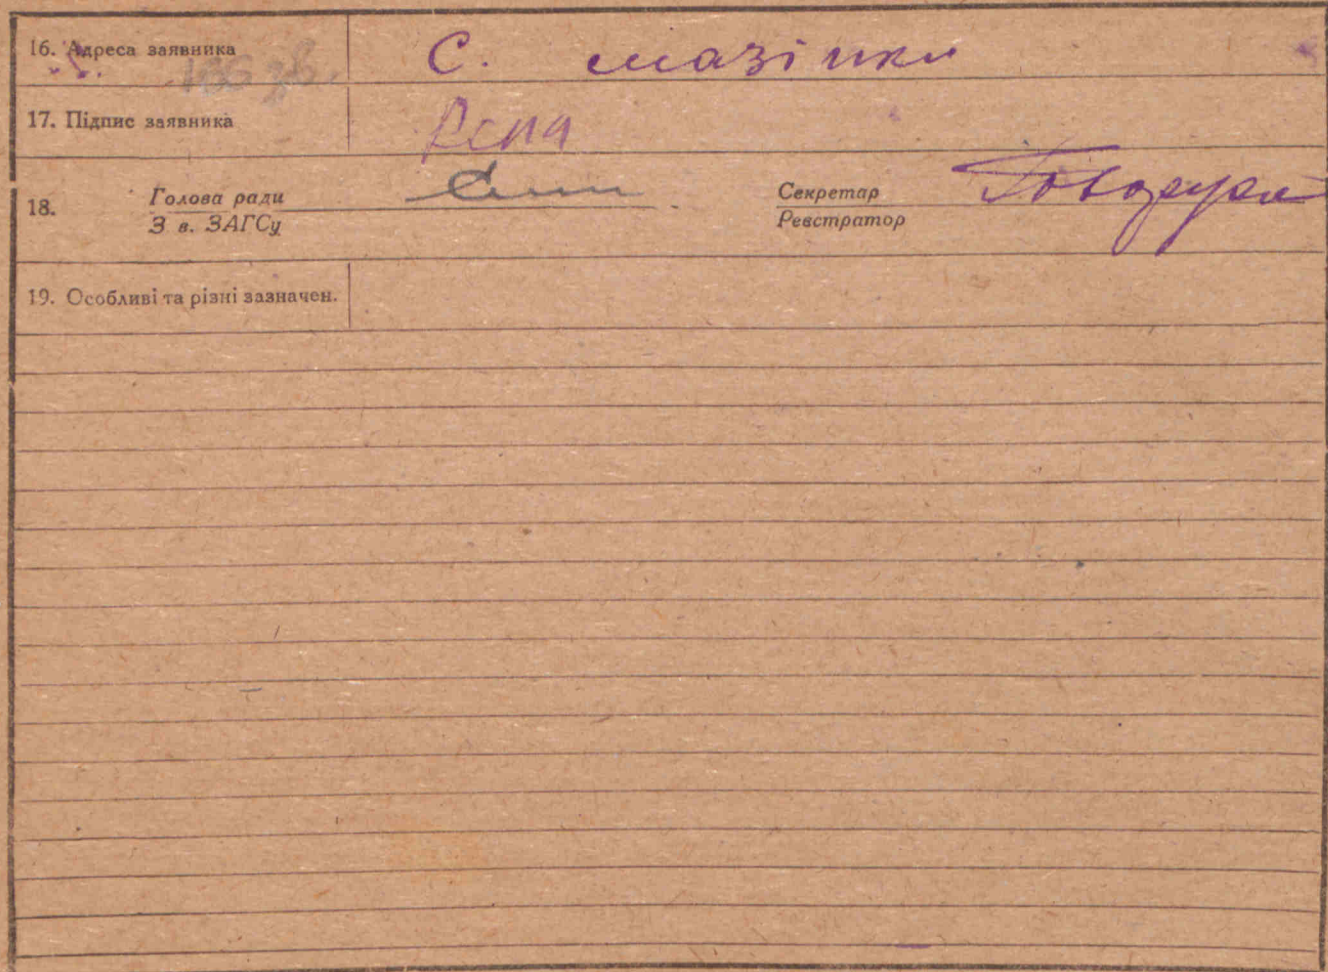 16. Адреса заявника С. мазінки
166 зв.
17. Підпис заявника Репа
18. Голова ради Секретар
З в. ЗАГСу Реєстратор
19. Особливі та різні зазначен.